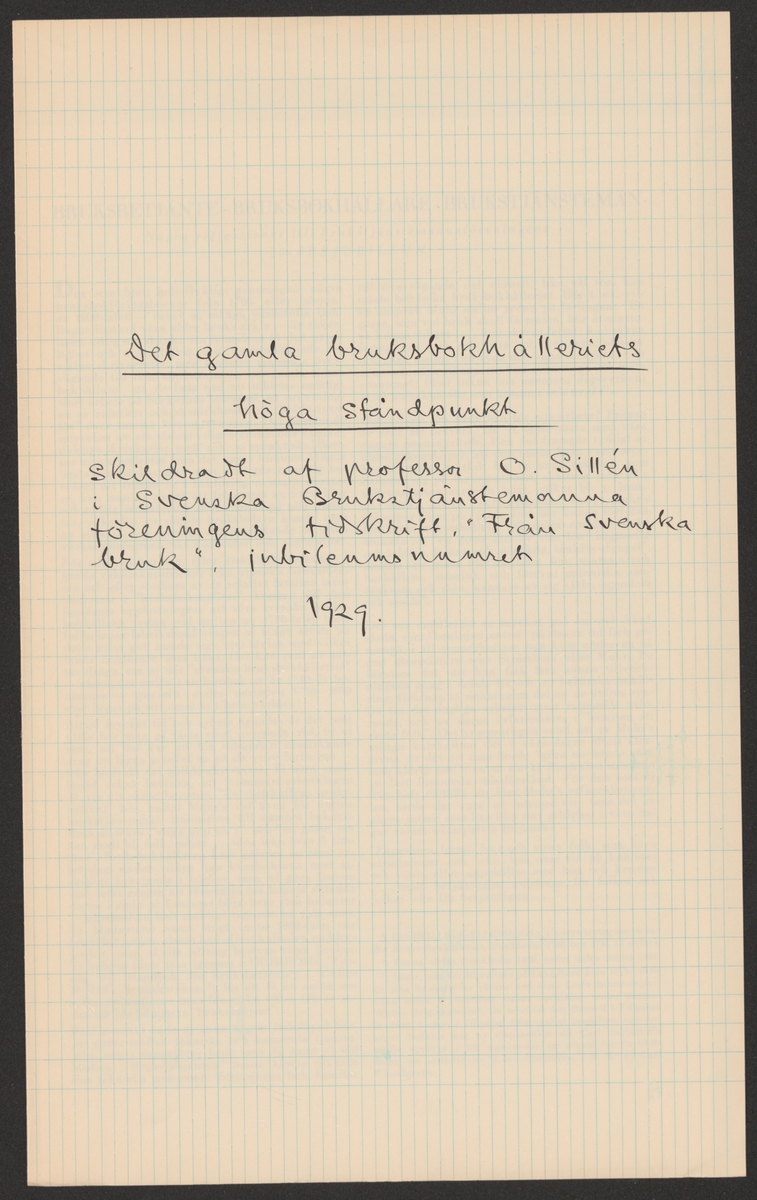 Det gamla bruksbokhålleriets
höga ståndpunkt
skildradt af professor O. Sillén
i Svenska Brukstjänstemanna
föreningens tidskrift, "Från Svenska
bruk", jubileumsnumret
1929.